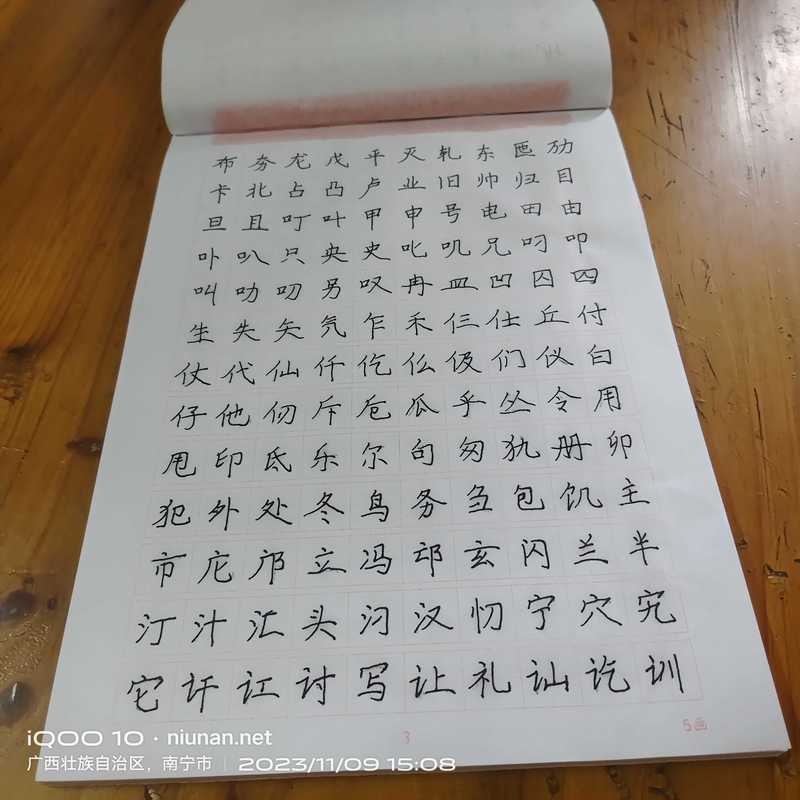 布 夯 龙 戊 平 灭 轧 东 匝 劢
卡 北 占 凸 卢 业 旧 帅 归 目
旦 且 叮 叶 甲 申 号 电 田 由
卟 叭 只 央 史 叱 叽 兄 叼 叩
叫 叻 叨 另 叹 冉 皿 凹 囚 四
生 失 矢 氕 乍 禾 仨 仕 丘 付
仗 代 仙 仟 仡 仫 伋 们 仪 白
仔 他 仞 斥 卮 瓜 乎 丛 令 用
甩 印 氐 乐 尔 句 匆 犰 册 卯
犯 外 处 冬 鸟 务 刍 包 饥 主
市 庀 邝 立 冯 邙 玄 闪 兰 半
汀 汁 汇 头 汈 汉 忉 宁 穴 宄
它 讦 讧 讨 写 让 礼 讪 讫 训
3
5画
iQOO 10 · niunan.net
广西壮族自治区，南宁市 | 2023/11/09 15:08